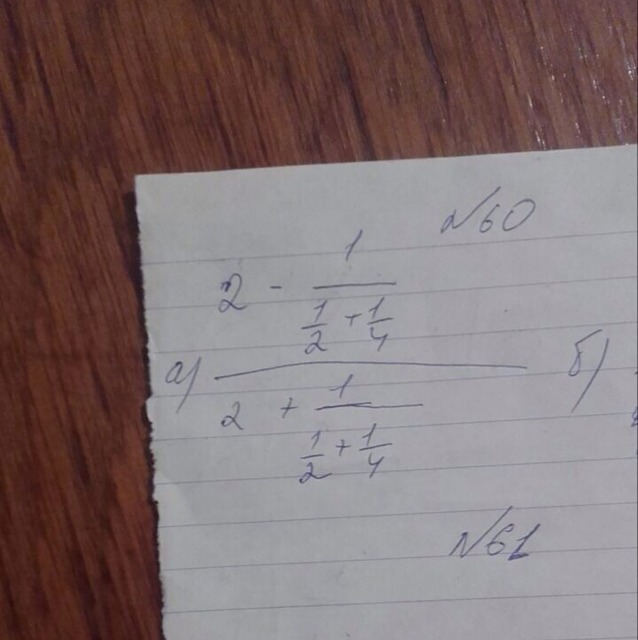 №60
а) (2 - 1/(1/2 + 1/4)) / (2 + 1/(1/2 + 1/4))
б)
№61